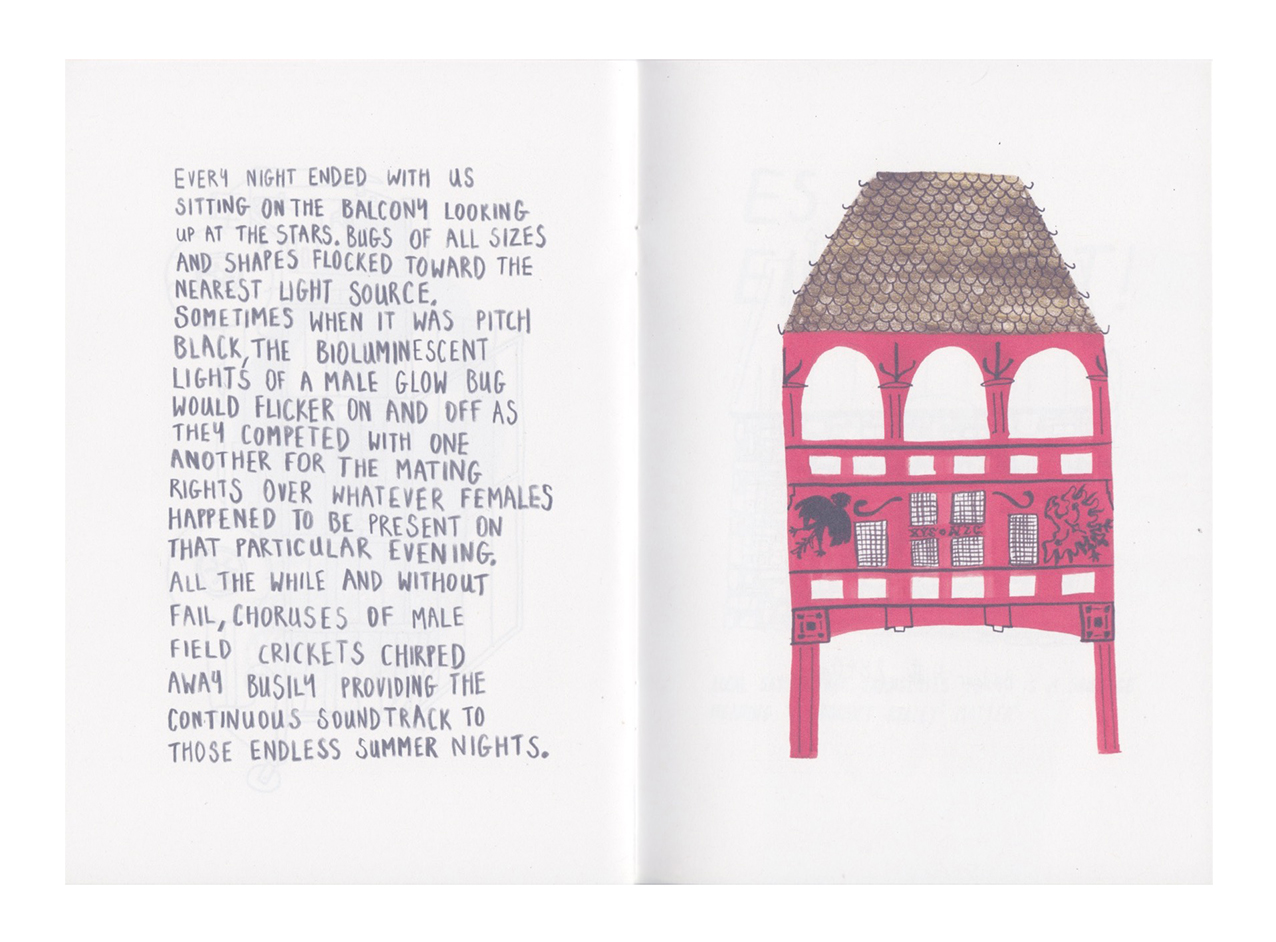 EVERY NIGHT ENDED WITH US
SITTING ON THE BALCONY LOOKING
UP AT THE STARS. BUGS OF ALL SIZES
AND SHAPES FLOCKED TOWARD THE
NEAREST LIGHT SOURCE.
SOMETIMES WHEN IT WAS PITCH
BLACK, THE BIOLUMINESCENT
LIGHTS OF A MALE GLOW BUG
WOULD FLICKER ON AND OFF AS
THEY COMPETED WITH ONE
ANOTHER FOR THE MATING
RIGHTS OVER WHATEVER FEMALES
HAPPENED TO BE PRESENT ON
THAT PARTICULAR EVENING.
ALL THE WHILE AND WITHOUT
FAIL, CHORUSES OF MALE
FIELD CRICKETS CHIRPED
AWAY BUSILY PROVIDING THE
CONTINUOUS SOUNDTRACK TO
THOSE ENDLESS SUMMER NIGHTS.